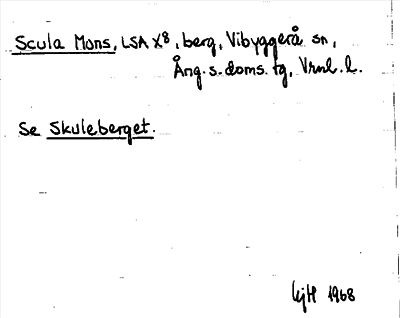 Scula Mons, LSA X8, berg, Vibyggerå sn,
Ång. s. doms. tg, Vrnl. l.
Se Skuleberget.
1968